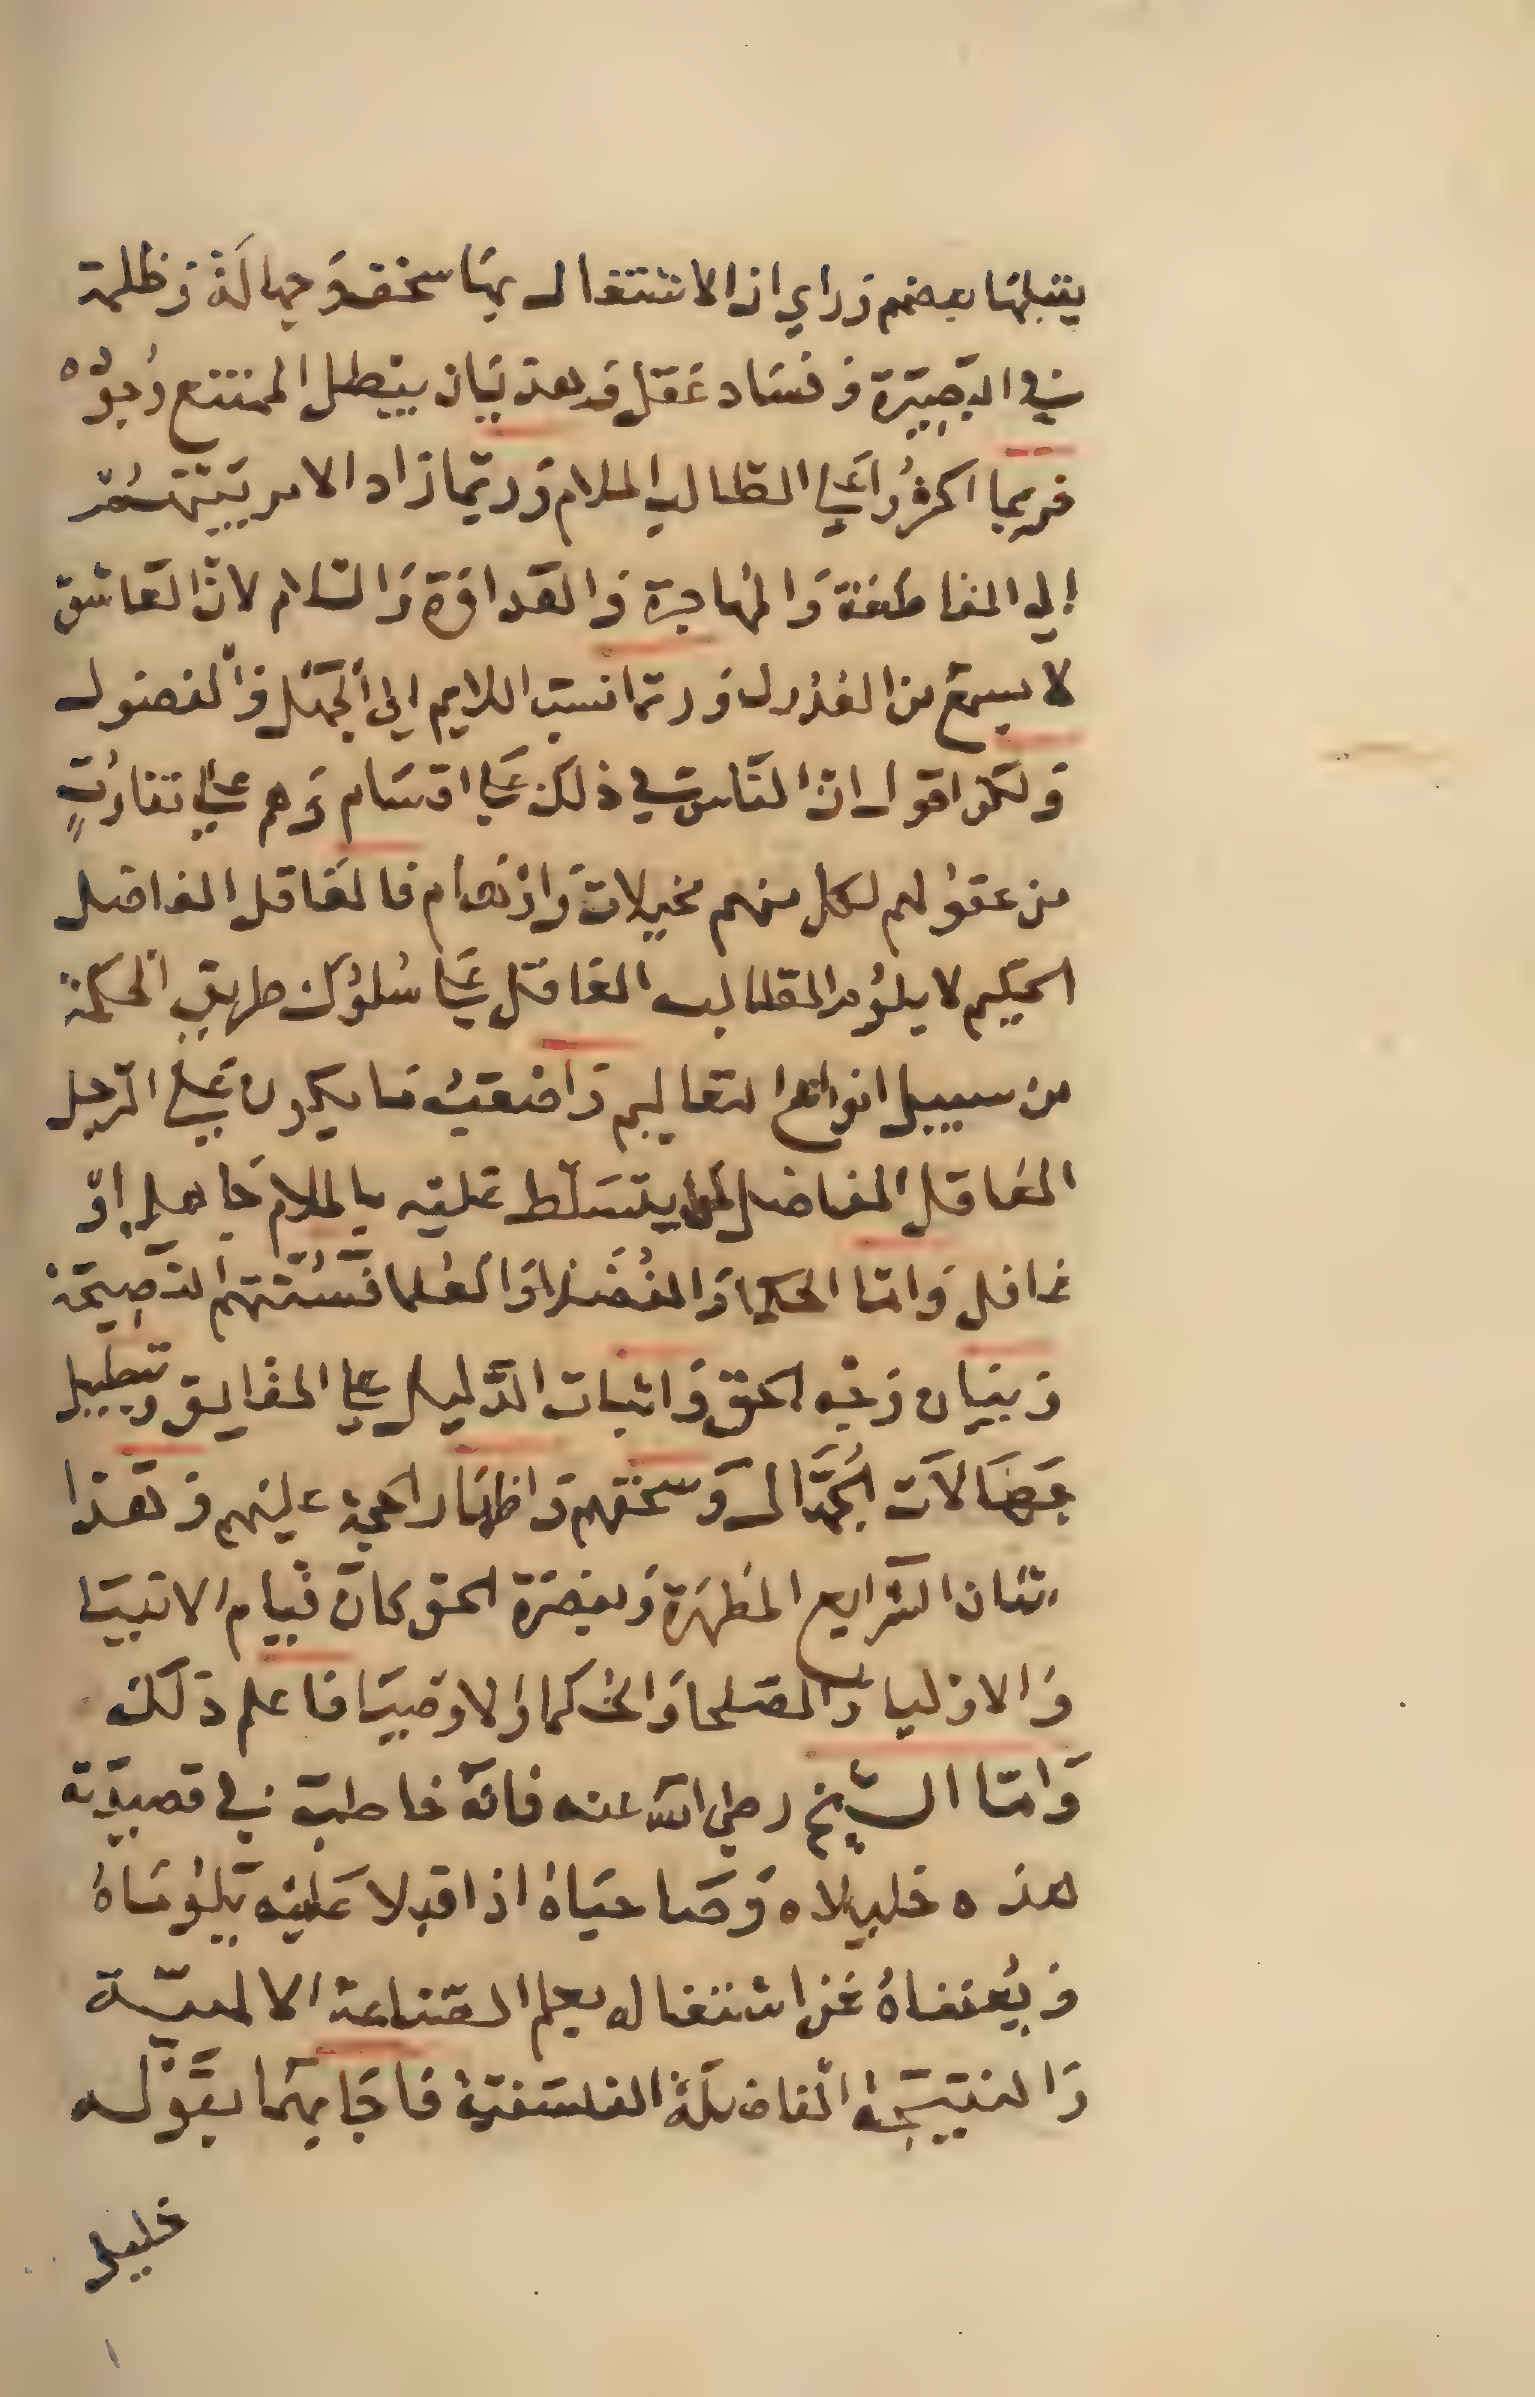 يقبلها بعضهم وراي ان الاشتغال بها سخف وجهالة وظلمة
في البصيرة وفساد عقل وبعد بيان يبطل الممتنع وجوده
فربما اكثروا علي الطالب الملام وربما زاد الامر بينهم
الي المقاطعة والمهاجرة والعداوة والسلام لان العاشق
لا يسمع من العذول وربما نسب اللايم الي الجهل والفضول
ولكن اقول ان الناس في ذلك علي اقسام وهم علي تفاوت
من عقولهم لكل منهم مخيلات واوهام فالعاقل الفاضل
الحكيم لا يلوم الطالب العاقل علي سلوك طريق الحكمة
من سبيل انواع التعاليم واصعب ما يكون علي الرجل
العاقل الفاضل لمن يتسلط عليه بالملام جاهل او
غافل واما الحكما والفضلا والعلما فسنتهم النصيحة
وبيان وجه الحق واثبات الدليل علي الحقايق وتبطيل
جهالات الجهال وسخفهم واظهار الحجة عليهم وبهذا
اتتان الشرايع المطهرة وبنصرة الحق كان قيام الانبيا
والاوليا والصلحا والحكما والاوصيا فاعلم ذلك
واما الشيخ رضي الله عنه فانه خاطب في قصيدته
هذه خليلاه وصاحباه اذا قبلا عليه يلوماه
ويعنفاه عن اشتغاله بعلم الصناعة الالهية
والنتيجة الفاضلة الفلسفية فاجابهما بقوله
خليلي